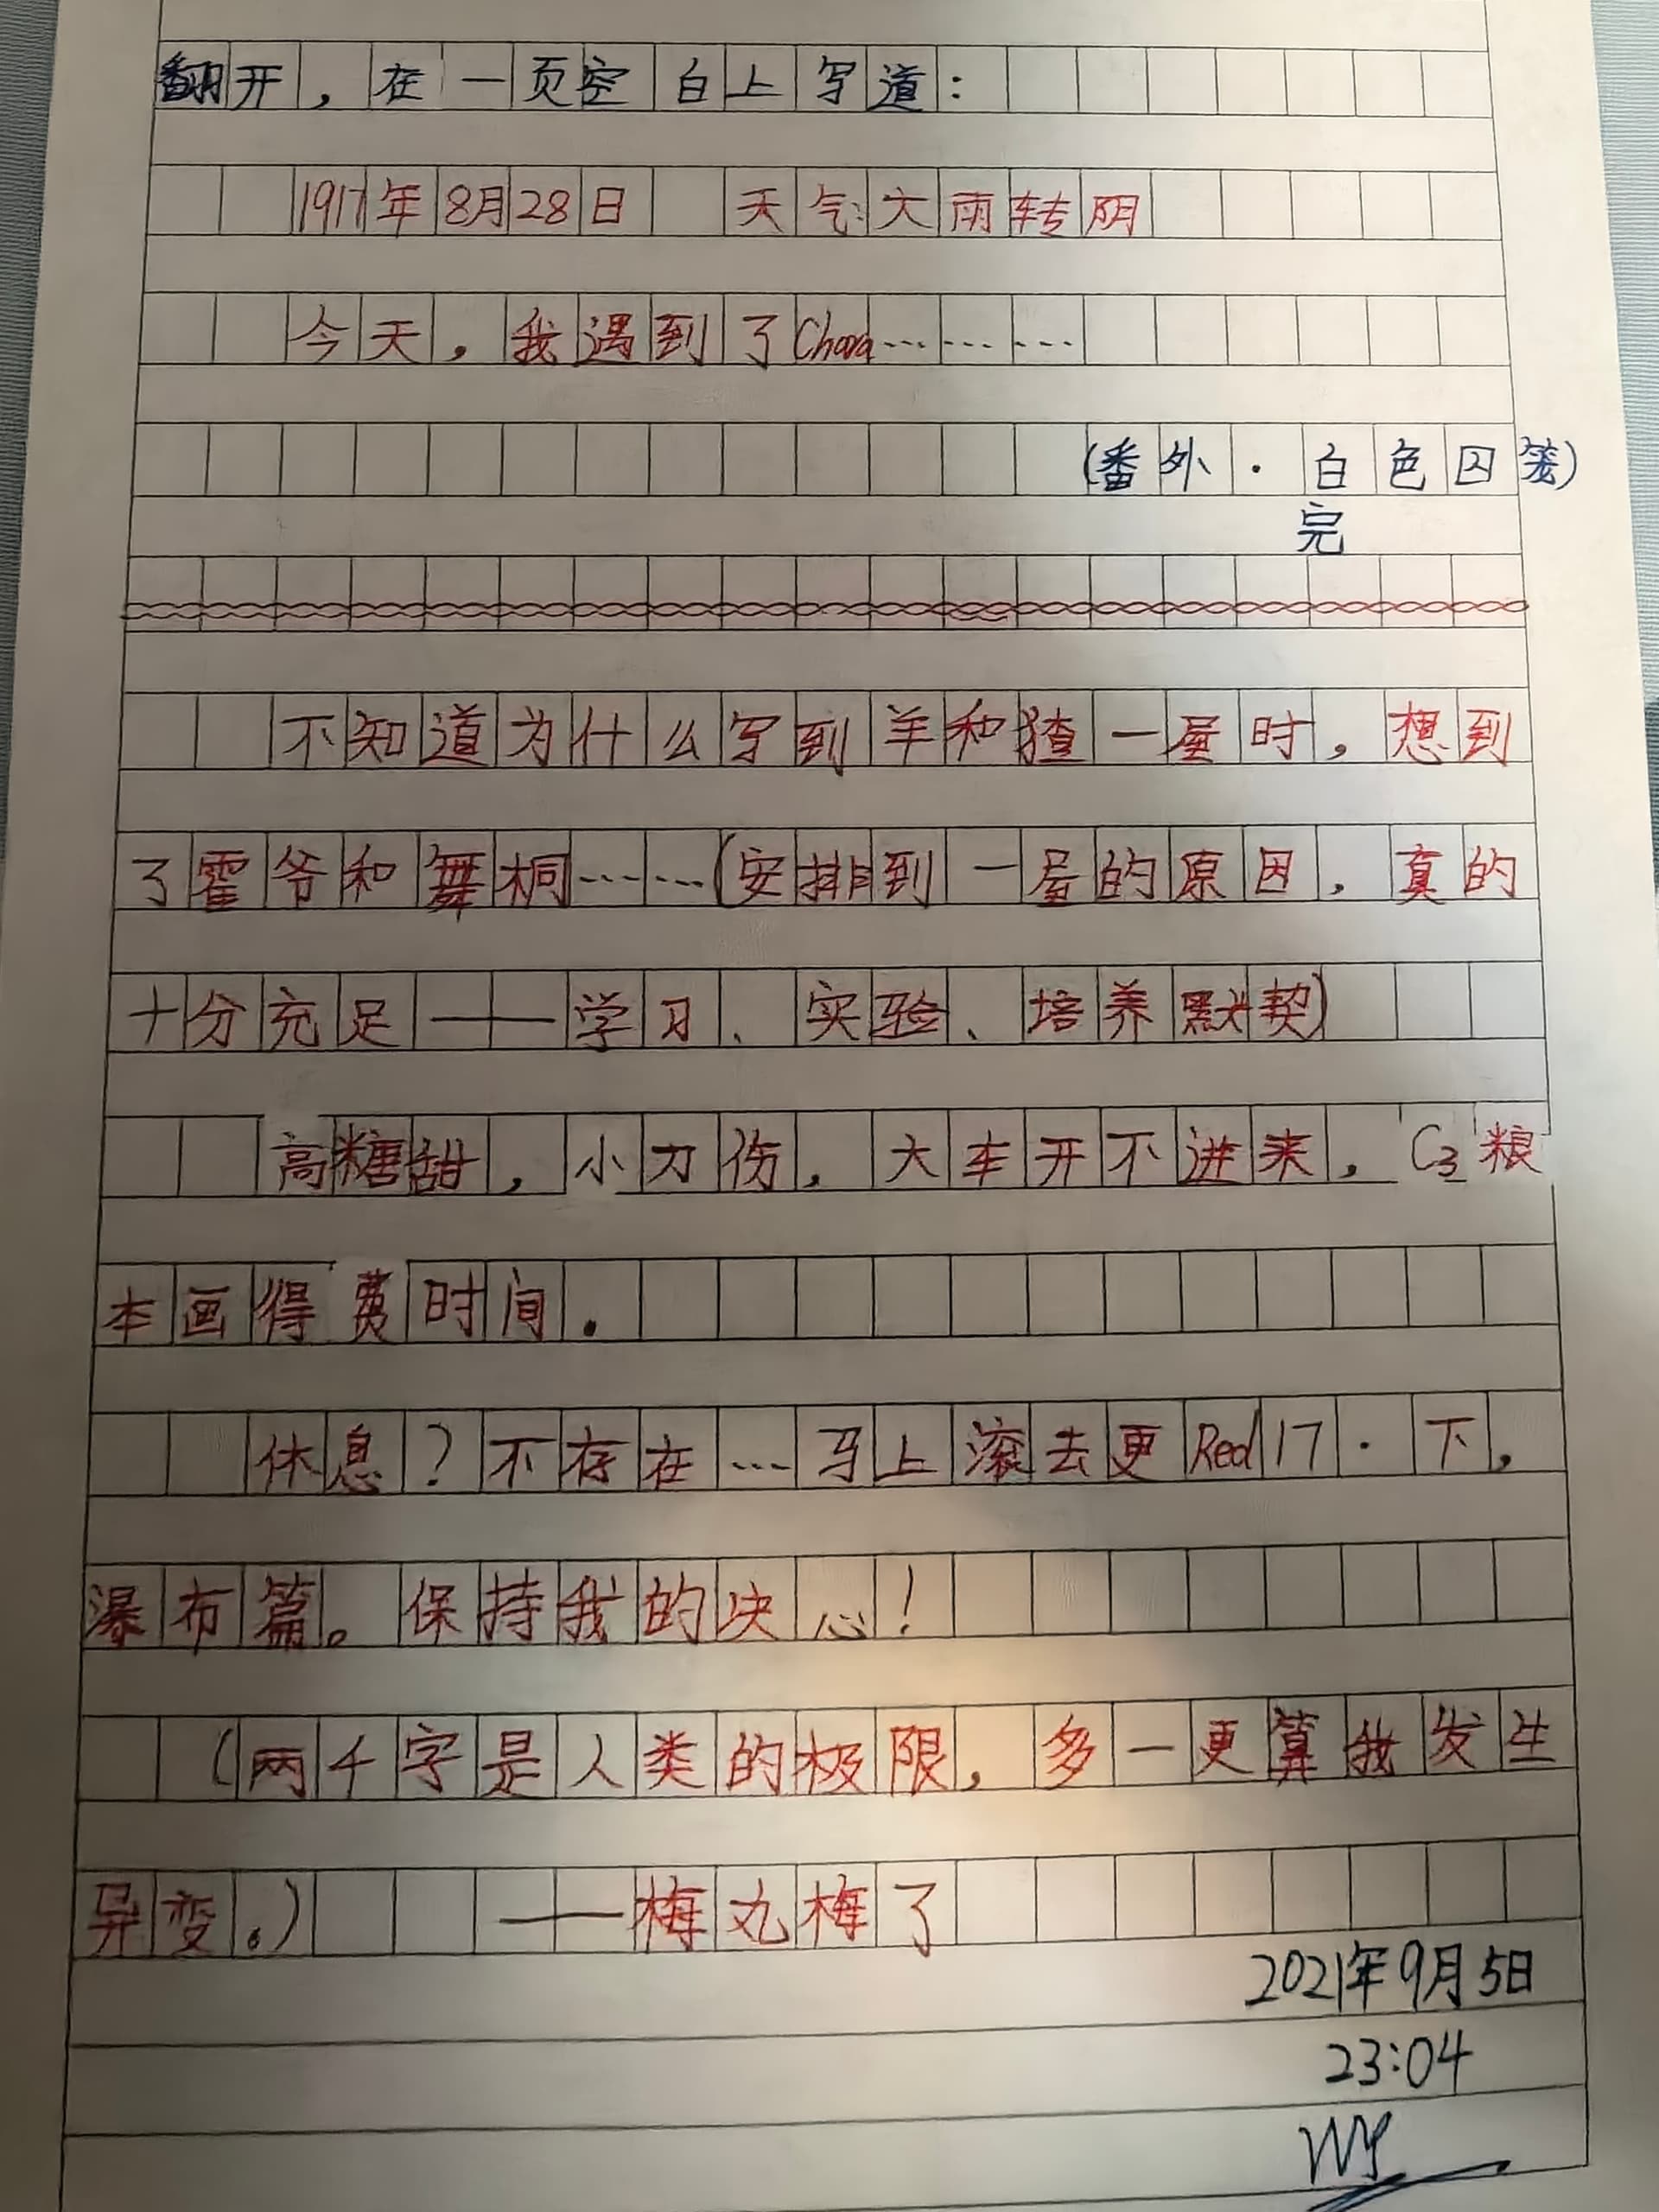 翻开，在一页空白上写道：
1917年8月28日 天气：大雨转阴
今天，我遇到了Chara………
（番外·白色囚笼）
完
不知道为什么写到羊和猹一屋时，想到
了霍爷和舞桐……（安排到一屋的原因，真的
十分充足——学习、实验、培养默契）
高糖甜，小刀伤，大车开不进来，C3粮
本画得费时间。
休息？不存在…马上滚去更Red17·下，
瀑布篇。保持我的决心！
（两千字是人类的极限，多一更算我发生
异变。）——梅丸梅了
2021年9月5日
23:04
WY